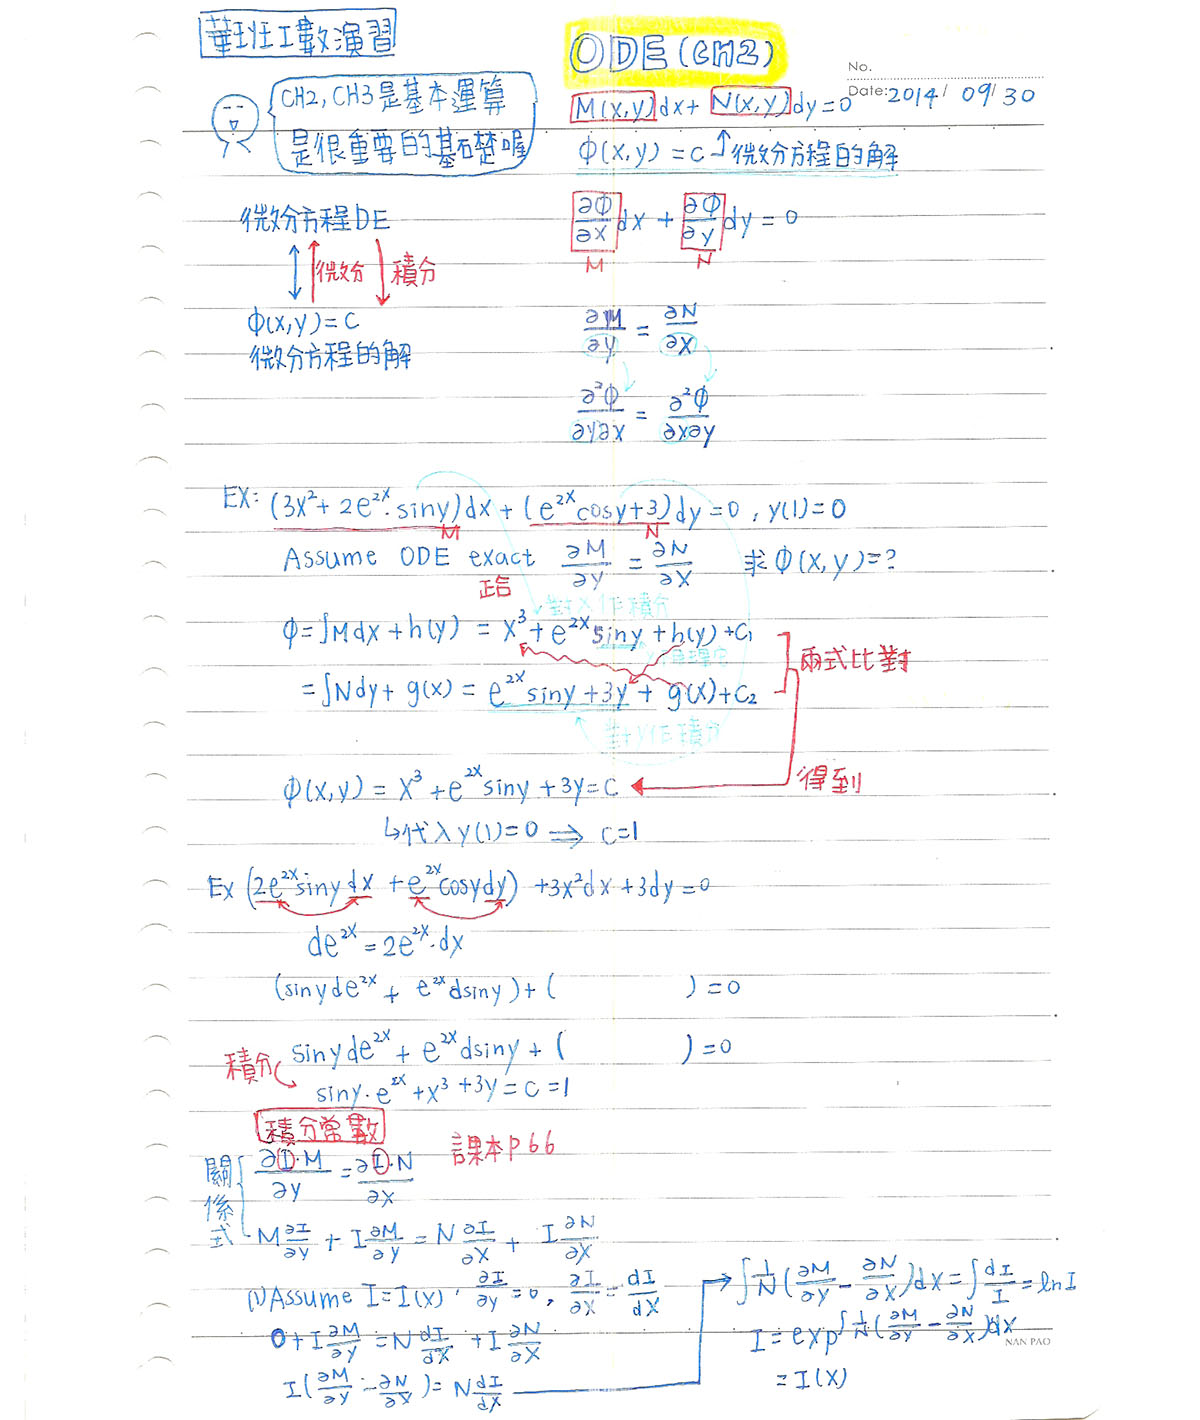 華班工數演習
ODE(CH2)
No.
Date: 2014/ 09/ 30
CH2, CH3是基本運算
是很重要的基石楚喔
M(x,y)dx + N(x,y)dy = 0
Φ(x,y) = c 微分方程的解
微分方程DE
微分 積分
Φ(x,y) = c
微分方程的解
∂Φ/∂x dx + ∂Φ/∂y dy = 0
M N
∂M/∂y = ∂N/∂x
∂²Φ/∂y∂x = ∂²Φ/∂x∂y
EX: (3x²+2e^2x·siny)dx + (e^2x cosy+3)dy = 0, y(1)=0
M N
Assume ODE exact ∂M/∂y = ∂N/∂x 求Φ(x,y)=?
正合
對x作積分
Φ=∫Mdx + h(y) = x³+e^2x siny + h(y) + C₁
=∫Ndy + g(x) = e^2x siny + 3y + g(x) + C₂
兩式比對
對y作積分
Φ(x,y) = x³+e^2x siny + 3y = c
得到
↳代入y(1)=0 ⇒ c=1
Ex (2e^2x siny dx + e^2x cosy dy) + 3x²dx + 3dy = 0
de^2x = 2e^2x·dx
(siny de^2x + e^2x dsiny) + ( ) = 0
siny de^2x + e^2x dsiny + ( ) = 0
積分
siny·e^2x + x³ + 3y = c = 1
積分常數
課本P66
關係式
∂I·M/∂y = ∂I·N/∂x
M ∂I/∂y + I ∂M/∂y = N ∂I/∂x + I ∂N/∂x
(1) Assume I=I(x), ∂I/∂y = 0, ∂I/∂x = dI/dx
0 + I ∂M/∂y = N dI/dx + I ∂N/∂x
I(∂M/∂y - ∂N/∂x) = N dI/dx
∫1/N(∂M/∂y - ∂N/∂x)dx = ∫dI/I = lnI
I = exp^∫1/N(∂M/∂y - ∂N/∂x)dx
= I(x)
NAN PAO